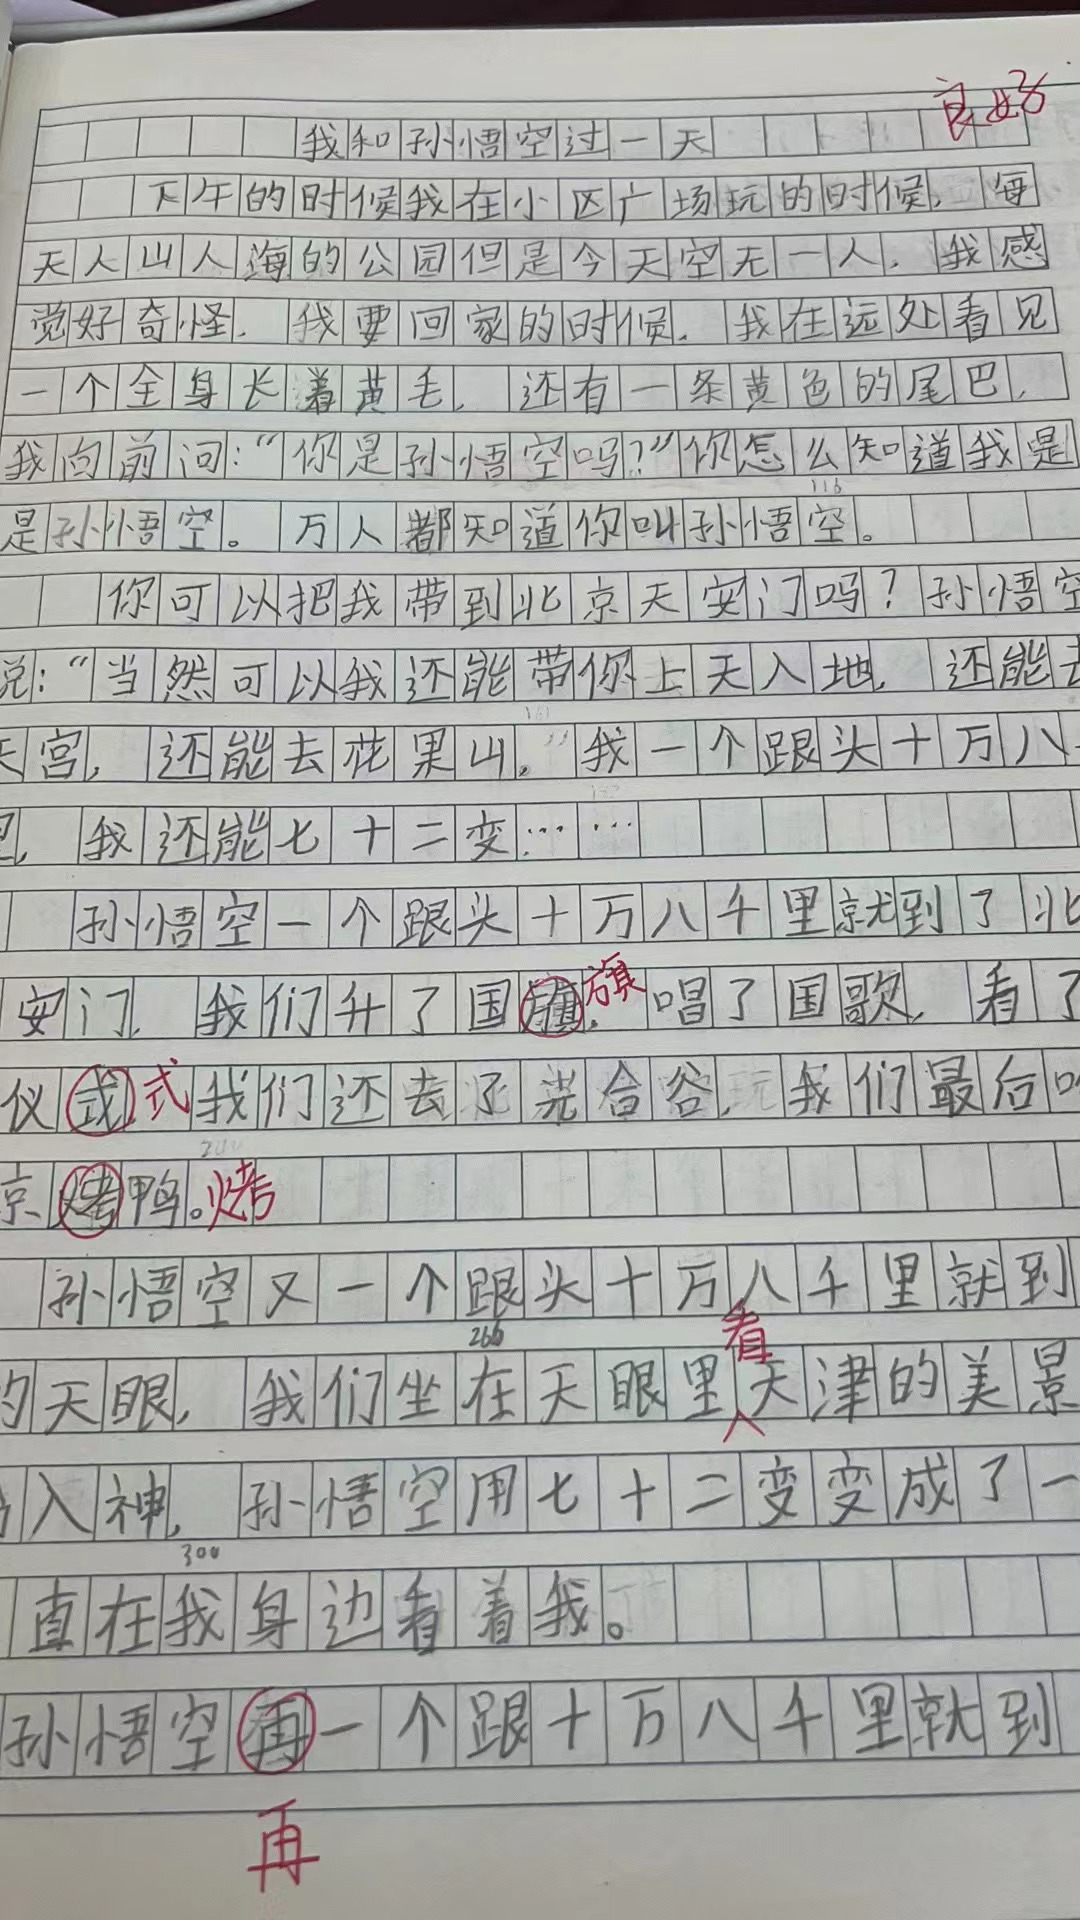 良好
我和孙悟空过一天
下午的时候我在小区广场玩的时候，每
天人山人海的公园但是今天空无一人，我感
觉好奇怪，我要回家的时候，我在远处看见
一个全身长着黄毛，还有一条黄色的尾巴，
我向前问：“你是孙悟空吗？”你怎么知道我是
116
是孙悟空。万人都知道你叫孙悟空。
你可以把我带到北京天安门吗？孙悟空
说：“当然可以我还能带你上天入地，还能去
161
天宫，还能去花果山，”我一个跟头十万八
我还能七十二变……
孙悟空一个跟头十万八千里就到了北
安门，我们升了国旗，旗唱了国歌，看了
仪式式我们还去了 合谷，我们最后吃
京烤鸭。烤
孙悟空又一个跟头十万八千里就到
266
看
的天眼，我们坐在天眼里天津的美景
入神，孙悟空用七十二变变成了一
300
直在我身边看着我。
孙悟空再一个跟十万八千里就到
再